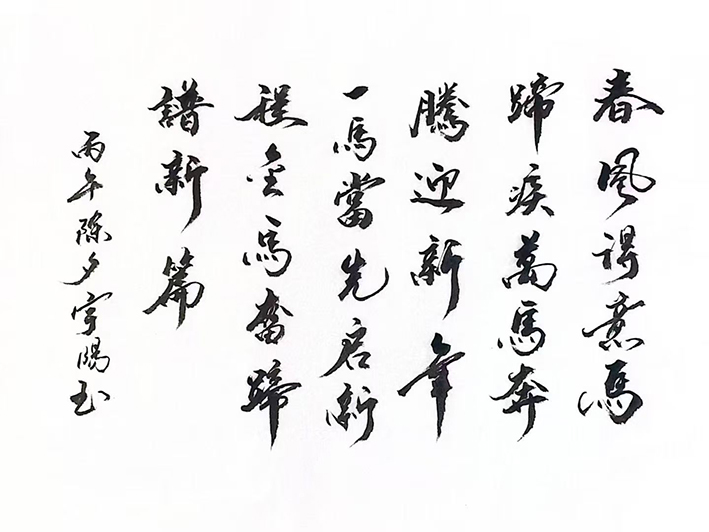 春風得意馬
蹄疾萬馬奔
騰迎新年
一馬當先启新
程金馬奮蹄
譜新篇
丙午除夕宇陽书